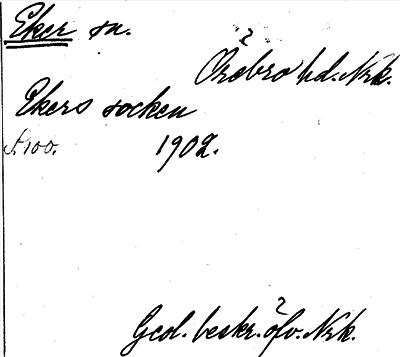 Eker sn.
Örebro hd. Nrk.
Ekers socken
S. 100. 1902.
Geol. beskr. öfv. Nrk.